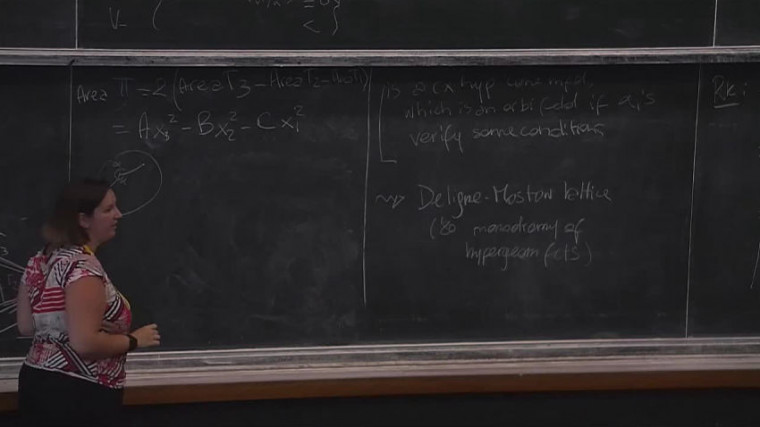 V-
Area Π = 2 (Area T3 - Area T2 -
= Ax3² - Bx2² - Cx1²
is a cx hyp cone mfd
which is an orbifold if αi's
verify some conditions
⇝ Deligne-Mostow lattice
('80 monodromy of
hypergeom fcts)
Rk: